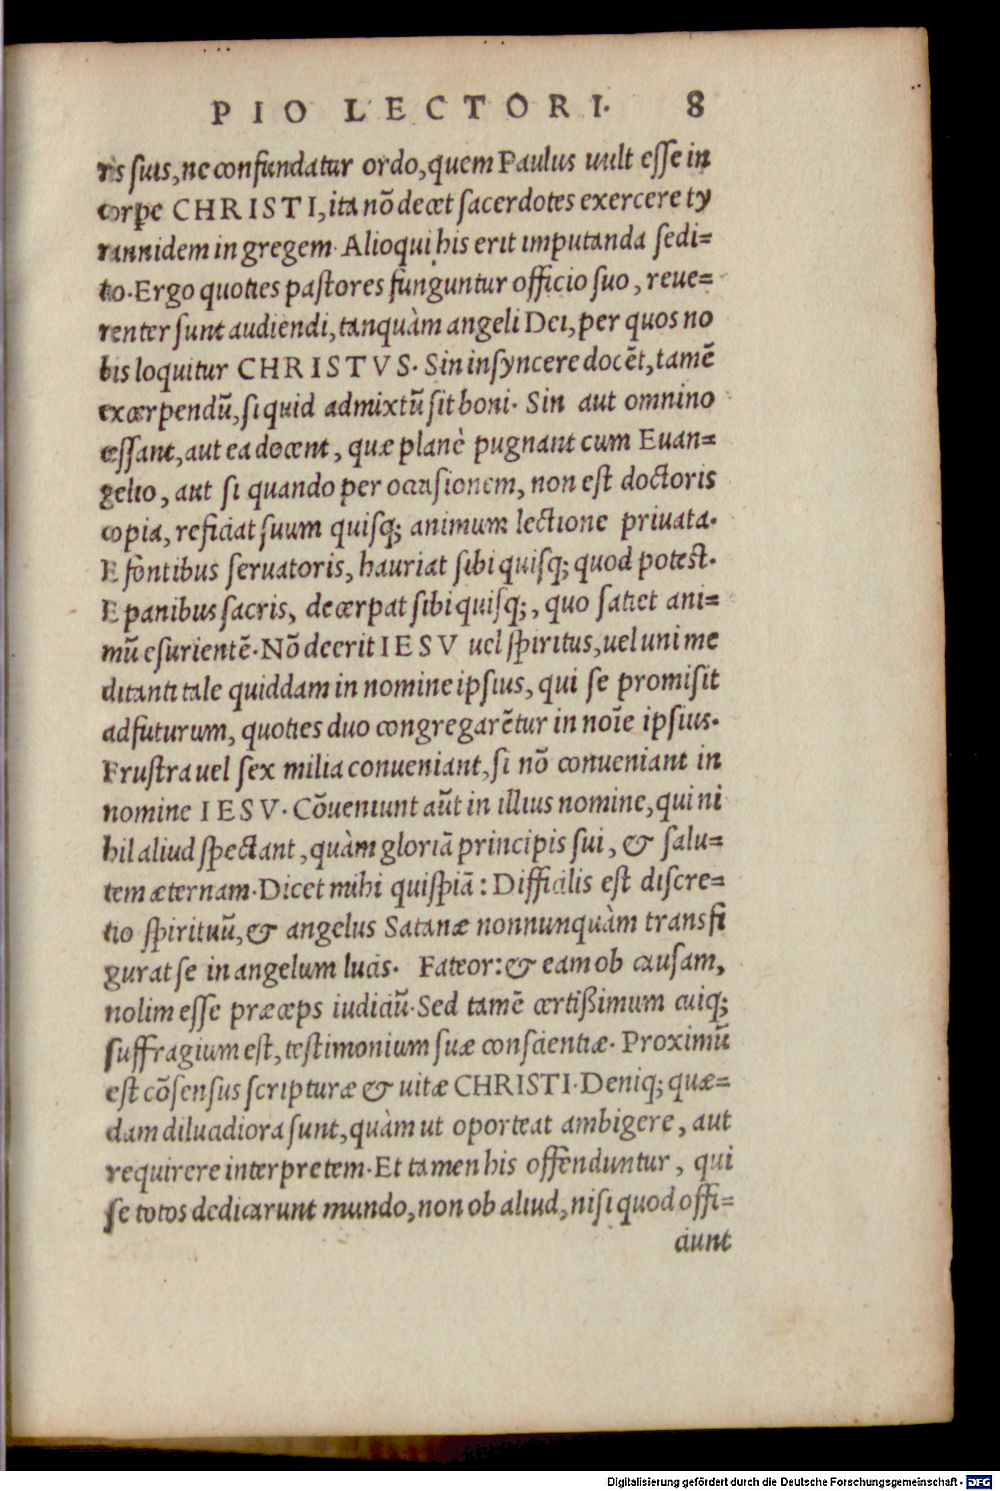 PIO LECTORI. 8
ris suis, ne confundatur ordo, quem Paulus uult esse in
corpe CHRISTI, ita nõ decet sacerdotes exercere ty
rannidem in gregem. Alioqui his erit imputanda sedi=
tio. Ergo quoties pastores funguntur officio suo, reue=
renter sunt audiendi, tanquàm angeli Dei, per quos no
bis loquitur CHRISTVS. Sin insyncere docẽt, tamẽ
excerpendũ, si quid admixtũ sit boni. Sin aut omnino
cessant, aut ea docent, quæ planè pugnant cum Euan=
gelio, aut si quando per occasionem, non est doctoris
copia, reficiat suum quisq; animum lectione priuata.
E fontibus seruatoris, hauriat sibi quisq; quod potest.
E panibus sacris, decerpat sibi quisq;, quo satiet ani=
mũ esurientẽ. Nõ deerit IESV uel spiritus, uel uni me
ditanti tale quiddam in nomine ipsius, qui se promisit
adfuturum, quoties duo congregarẽtur in noĩe ipsius.
Frustra uel sex milia conueniant, si nõ conueniant in
nomine IESV. Cõueniunt aũt in illius nomine, qui ni
hil aliud spectant, quàm gloriã principis sui, & salu=
tem æternam. Dicet mihi quispiã: Difficilis est discre=
tio spirituũ, & angelus Satanæ nonnunquàm transfi
gurat se in angelum lucis. Fateor: & eam ob causam,
nolim esse præceps iudiciũ. Sed tamẽ certißimum cuiq;
suffragium est, testimonium suæ conscientiæ. Proximũ
est cõsensus scripturæ & uitæ CHRISTI. Deniq; quæ=
dam dilucidiora sunt, quàm ut oporteat ambigere, aut
requirere interpretem. Et tamen his offenduntur, qui
se totos dedicarunt mundo, non ob aliud, nisi quod offi=
ciunt
Digitalisierung gefördert durch die Deutsche Forschungsgemeinschaft - DFG